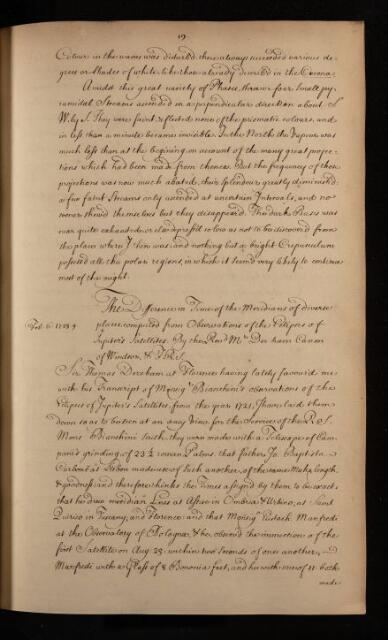 9
Colour in the waves was disturb'd there always succeeded various de-
grees or Shades of white like those already described in the Corona.
Amidst this great variety of Phases, three or four small py-
ramidal Streams ascended in a perpendicular direction about S
W. by S. They were faint, reflected none of the prismatic colours, and
in less than a minute became invisible. In the North the Vapour was
much less than at the beginning on account of the many great projec-
tions which had been made from thence. But the frequency of these
projections was now much abated, their Splendour greatly diminish'd:
a few faint Streams only ascended at uncertain Intervals, and no
sooner shew'd themselves but they disappear'd. The dark Basis was
now quite exhausted or else depress'd so low as not to be discover'd from
the place where I then was: and nothing but a bright Crepusculum
possess'd all the polar regions, in which it seem'd very likely to continue
most of the night.
The Difference in Time of the Meridians of diverse
places computed from Observations of the Eclipses of
Jupiter's Satellites. By the Revd Mr Derham Canon
of Windsor, & F.R.S.
Feb. 6. 1728/9
Sir Thomas Dereham at Florence having lately favour'd me
with his Transcript of Monsigr Bianchini's observations of the
Eclipses of Jupiter's Satellites from the year 1721, I have laid them
down so as to be seen at an easy View for the Service of the R. S.
Monsr Bianchini saith they were made with a Telescope of Cam-
pani's grinding of 23 ½ roman Palms, that father Jo. Baptista
Carbone at Lisbon made use of such another, of the same Make, length,
& goodness and therefore thinks the Times assign'd by them to be exact:
that he drew meridian Lines at Assise in Ombria; & Urbino; at Saint
Quirico in Tuscany, and Florence: and that Monsigr Eustach. Manfredi
at the Observatory of Bologna, & he observ'd the immersion of the
first Satellite on Aug. 23. within two Seconds of one another,
Manfredi with a Glass of 8 Bononia feet, and he with one of 11 both
made